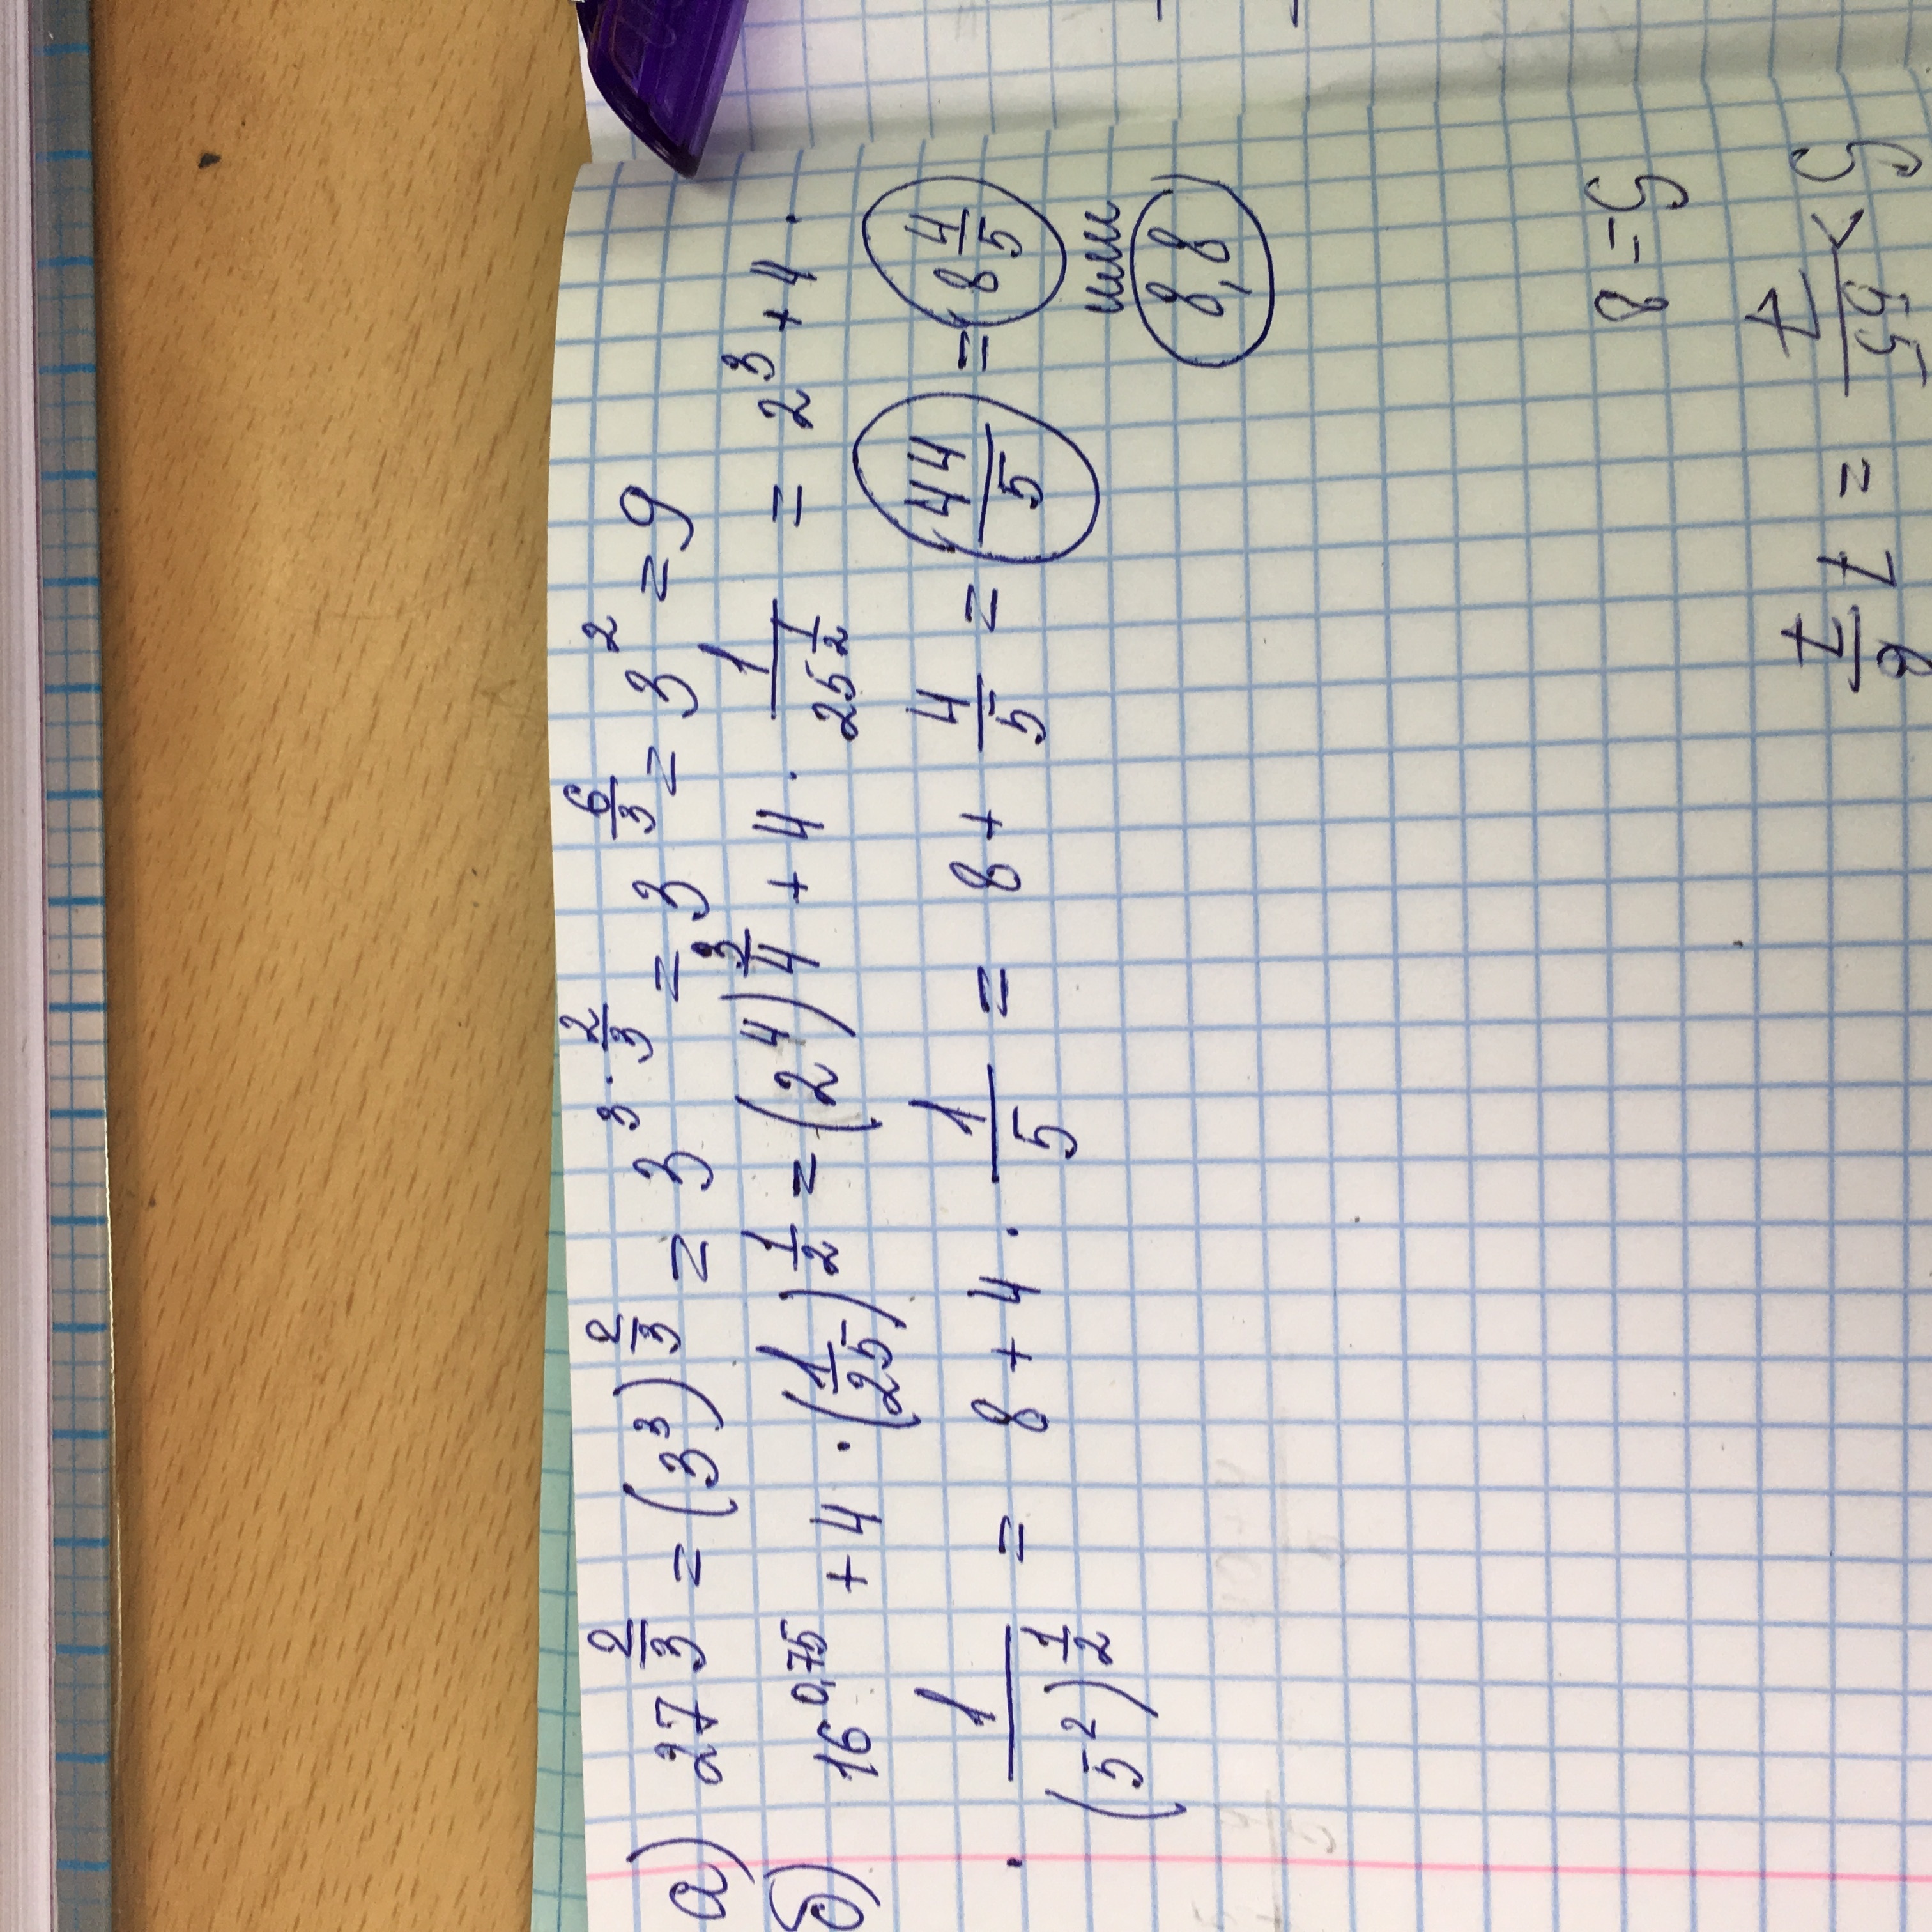 а) 27^(2/3) = (3³)^(2/3) = 3^(3·2/3) = 3^(6/3) = 3² = 9
б) 16^0,75 + 4 · (1/25)^(1/2) = (2⁴)^(3/4) + 4 · 1/25^(1/2) = 2³ + 4 ·
· 1/(5²)^(1/2) = 8 + 4 · 1/5 = 8 + 4/5 = 44/5 = 8 4/5
или
8,8